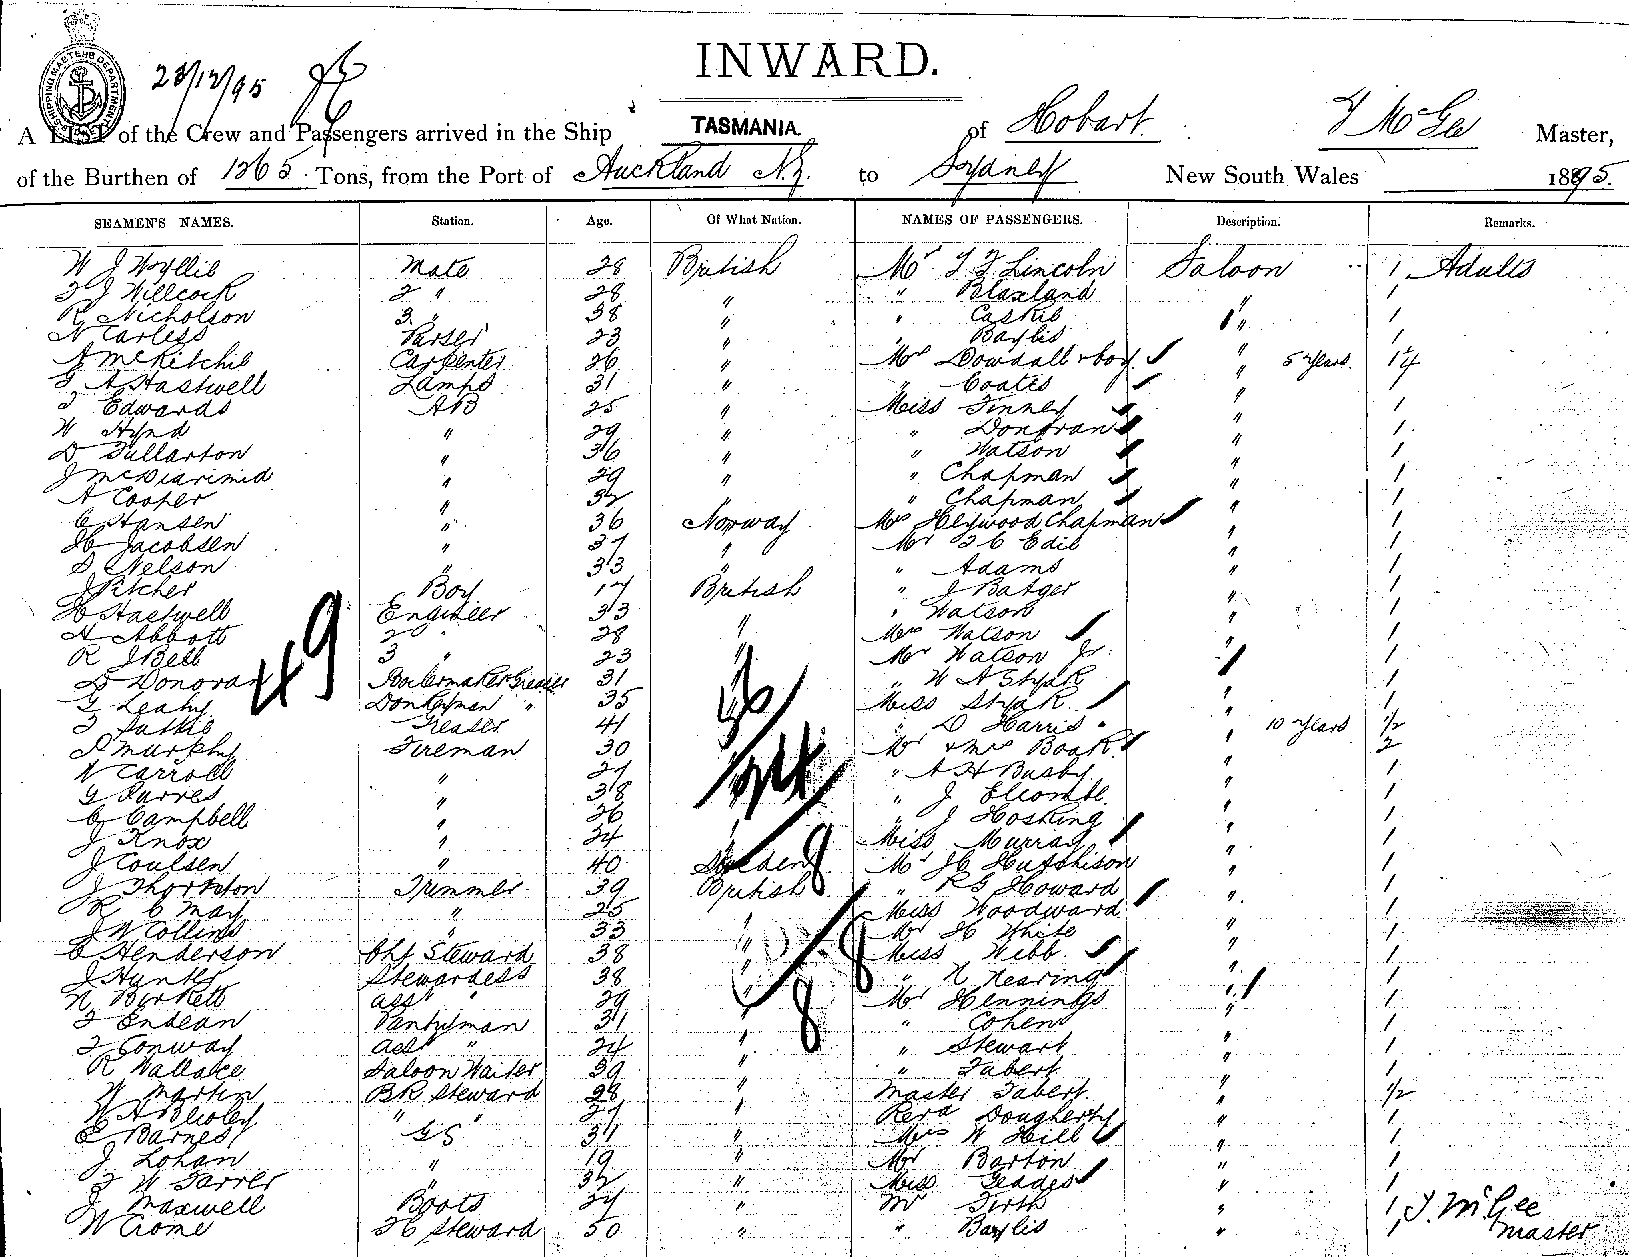 INWARD.
SHIPPING MASTERS DEPARTMENT
23/12/95
A LIST of the Crew and Passengers arrived in the Ship TASMANIA of Hobart T McGee Master,
of the Burthen of 1265 Tons, from the Port of Auckland N.Z. to Sydney New South Wales 1895.
SEAMEN'S NAMES. Station. Age. Of What Nation. NAMES OF PASSENGERS. Description. Remarks.
W J Wyllie Mate 28 British Mr T F Lincoln Saloon 1 Adults
J Willcock 2 " 28 " " Blaxland " 1
R Nicholson 3 " 38 " " Caskie " 1
N Carless Purser 23 " " Baylis 1
A McKitchie Carpenter 26 " Mrs Dowdall & boy " 5 Years 1
A Hastwell Lamps 31 " " Coates " 1
Edwards AB 25 " Miss Finney " 1
W Hynd " 29 " " Donovan " 1
D Fullarton " 36 " " Watson " 1
J McDiarimid " 29 " " Chapman " 1
A Cooper " 32 " " Chapman " 1
C Hansen " 36 Norway Mrs Heywood Chapman " 1
H Jacobsen " 37 " Mr Edie " 1
S Nelson " 33 " " Adams " 1
J Pitcher Boy 17 British " J Batger " 1
H Hastwell Engineer 33 " " Watson " 1
H Abbott 2 " 28 " Mrs Watson " 1
R J Bell 3 " 23 " Mr Watson Jr " 1
D Donovan Boilermaker Greaser 31 " W A Stysk " 1
T Leahy Donkeyman " 35 Miss Stysk " 1
Greaser 41 " D Harris " 10 Years 1/2
J Murphy Fireman 30 Mr & Mrs Boak " 2
N Carroll " 27 " A H Busby " 1
" 38 " J Elcombe " 1
C Campbell " 26 " J Hosking " 1
J Knox " 24 " Miss Murray " 1
J Coulsen " 40 Sweden Mr H Hutchison " 1
J Thornton Trimmer 39 British " R G Howard " 1
R C May " 25 Miss Woodward " 1
J W Collins " 33 " Mr H White " 1
C Henderson Chf Steward 38 " Miss Webb " 1
J Hunter Stewardess 38 " " N Nearing " 1
N Birkett asst " 29 Mr Hennings " 1
Endean Pantryman 31 " " Cohen " 1
Conway asst " 24 " " Stewart " 1
R Wallace Saloon Waiter 39 " " Tabert " 1
W Martin BR Steward 28 " Master Tabert " 1/2
" " 27 " Revd Dougherty " 1
E Barnes GS 31 " Mrs W Hill " 1
J Lohan " 19 " Mr Barton " 1
W Farrer " 32 " Miss Geddes " 1
J Maxwell Boots 24 " Mr Firth " 1 T. McGee
W Crome FC Steward 50 " " Baylis " 1 Master
49